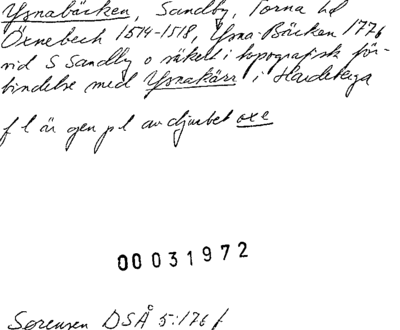 Yssnabäcken, Sandby, Torna hd
Öxnebeck 1514-1518, Yssna Bäcken 1776
vid S Sandby o säkert i topografisk för-
bindelse med Yssnakärr i Hardeberga
f l är gen pl av djurbet oxe
00031972
Sørensen DSÅ 5:176 f